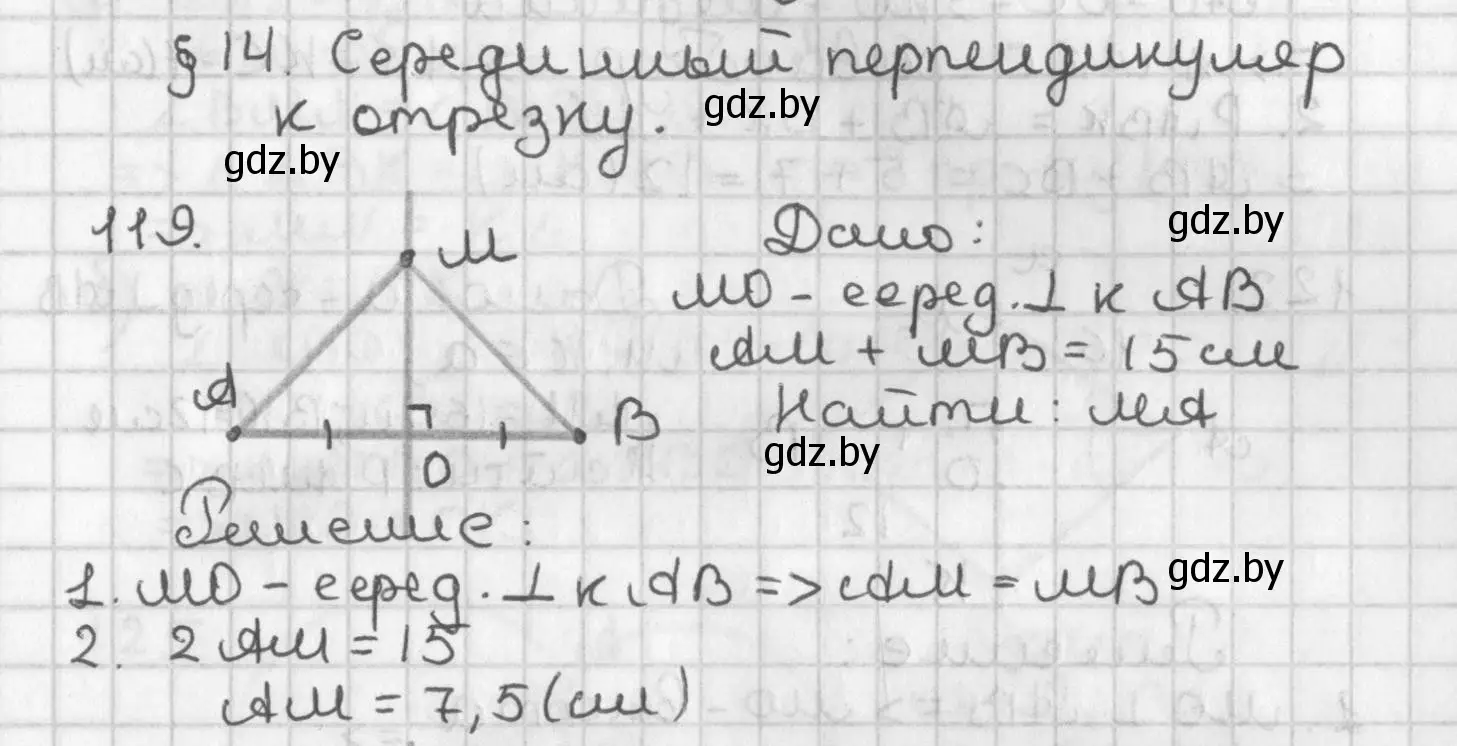 § 14. Серединный перпендикуляр
к отрезку.
gdz.by
gdz.by
119.
M
A
B
O
Дано:
gdz.by
MO - серед. ⊥ к AB
AM + MB = 15 см
Найти: MA
gdz.by
Решение:
1. MO - серед. ⊥ к AB => AM = MB
gdz.by
2. 2 AM = 15
AM = 7,5 (см)